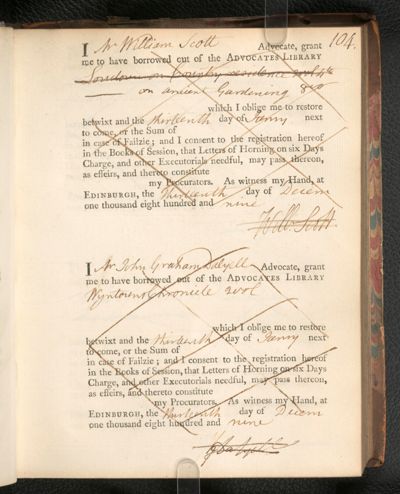 104.
I Mr William Scott Advocate, grant
me to have borrowed out of the ADVOCATES LIBRARY
Loudon on Country residence 2 vol 4to
on ancient Gardening 8vo
which I oblige me to restore
betwixt and the thirteenth day of Janry next
to come, or the Sum of
in case of Failzie; and I consent to the registration hereof
in the Books of Session, that Letters of Horning on six Days
Charge, and other Executorials needful, may pass thereon,
as effeirs, and thereto constitute
my Procurators. As witness my Hand, at
EDINBURGH, the thirteenth day of Decem
one thousand eight hundred and nine
Will. Scott.
I Mr John Graham Dalyell Advocate, grant
me to have borrowed out of the ADVOCATES LIBRARY
Wyntowns Chronicle 2 vol
which I oblige me to restore
betwixt and the thirteenth day of Janry next
to come, or the Sum of
in case of Failzie; and I consent to the registration hereof
in the Books of Session, that Letters of Horning on six Days
Charge, and other Executorials needful, may pass thereon,
as effeirs, and thereto constitute
my Procurators. As witness my Hand, at
EDINBURGH, the thirteenth day of Decem
one thousand eight hundred and nine